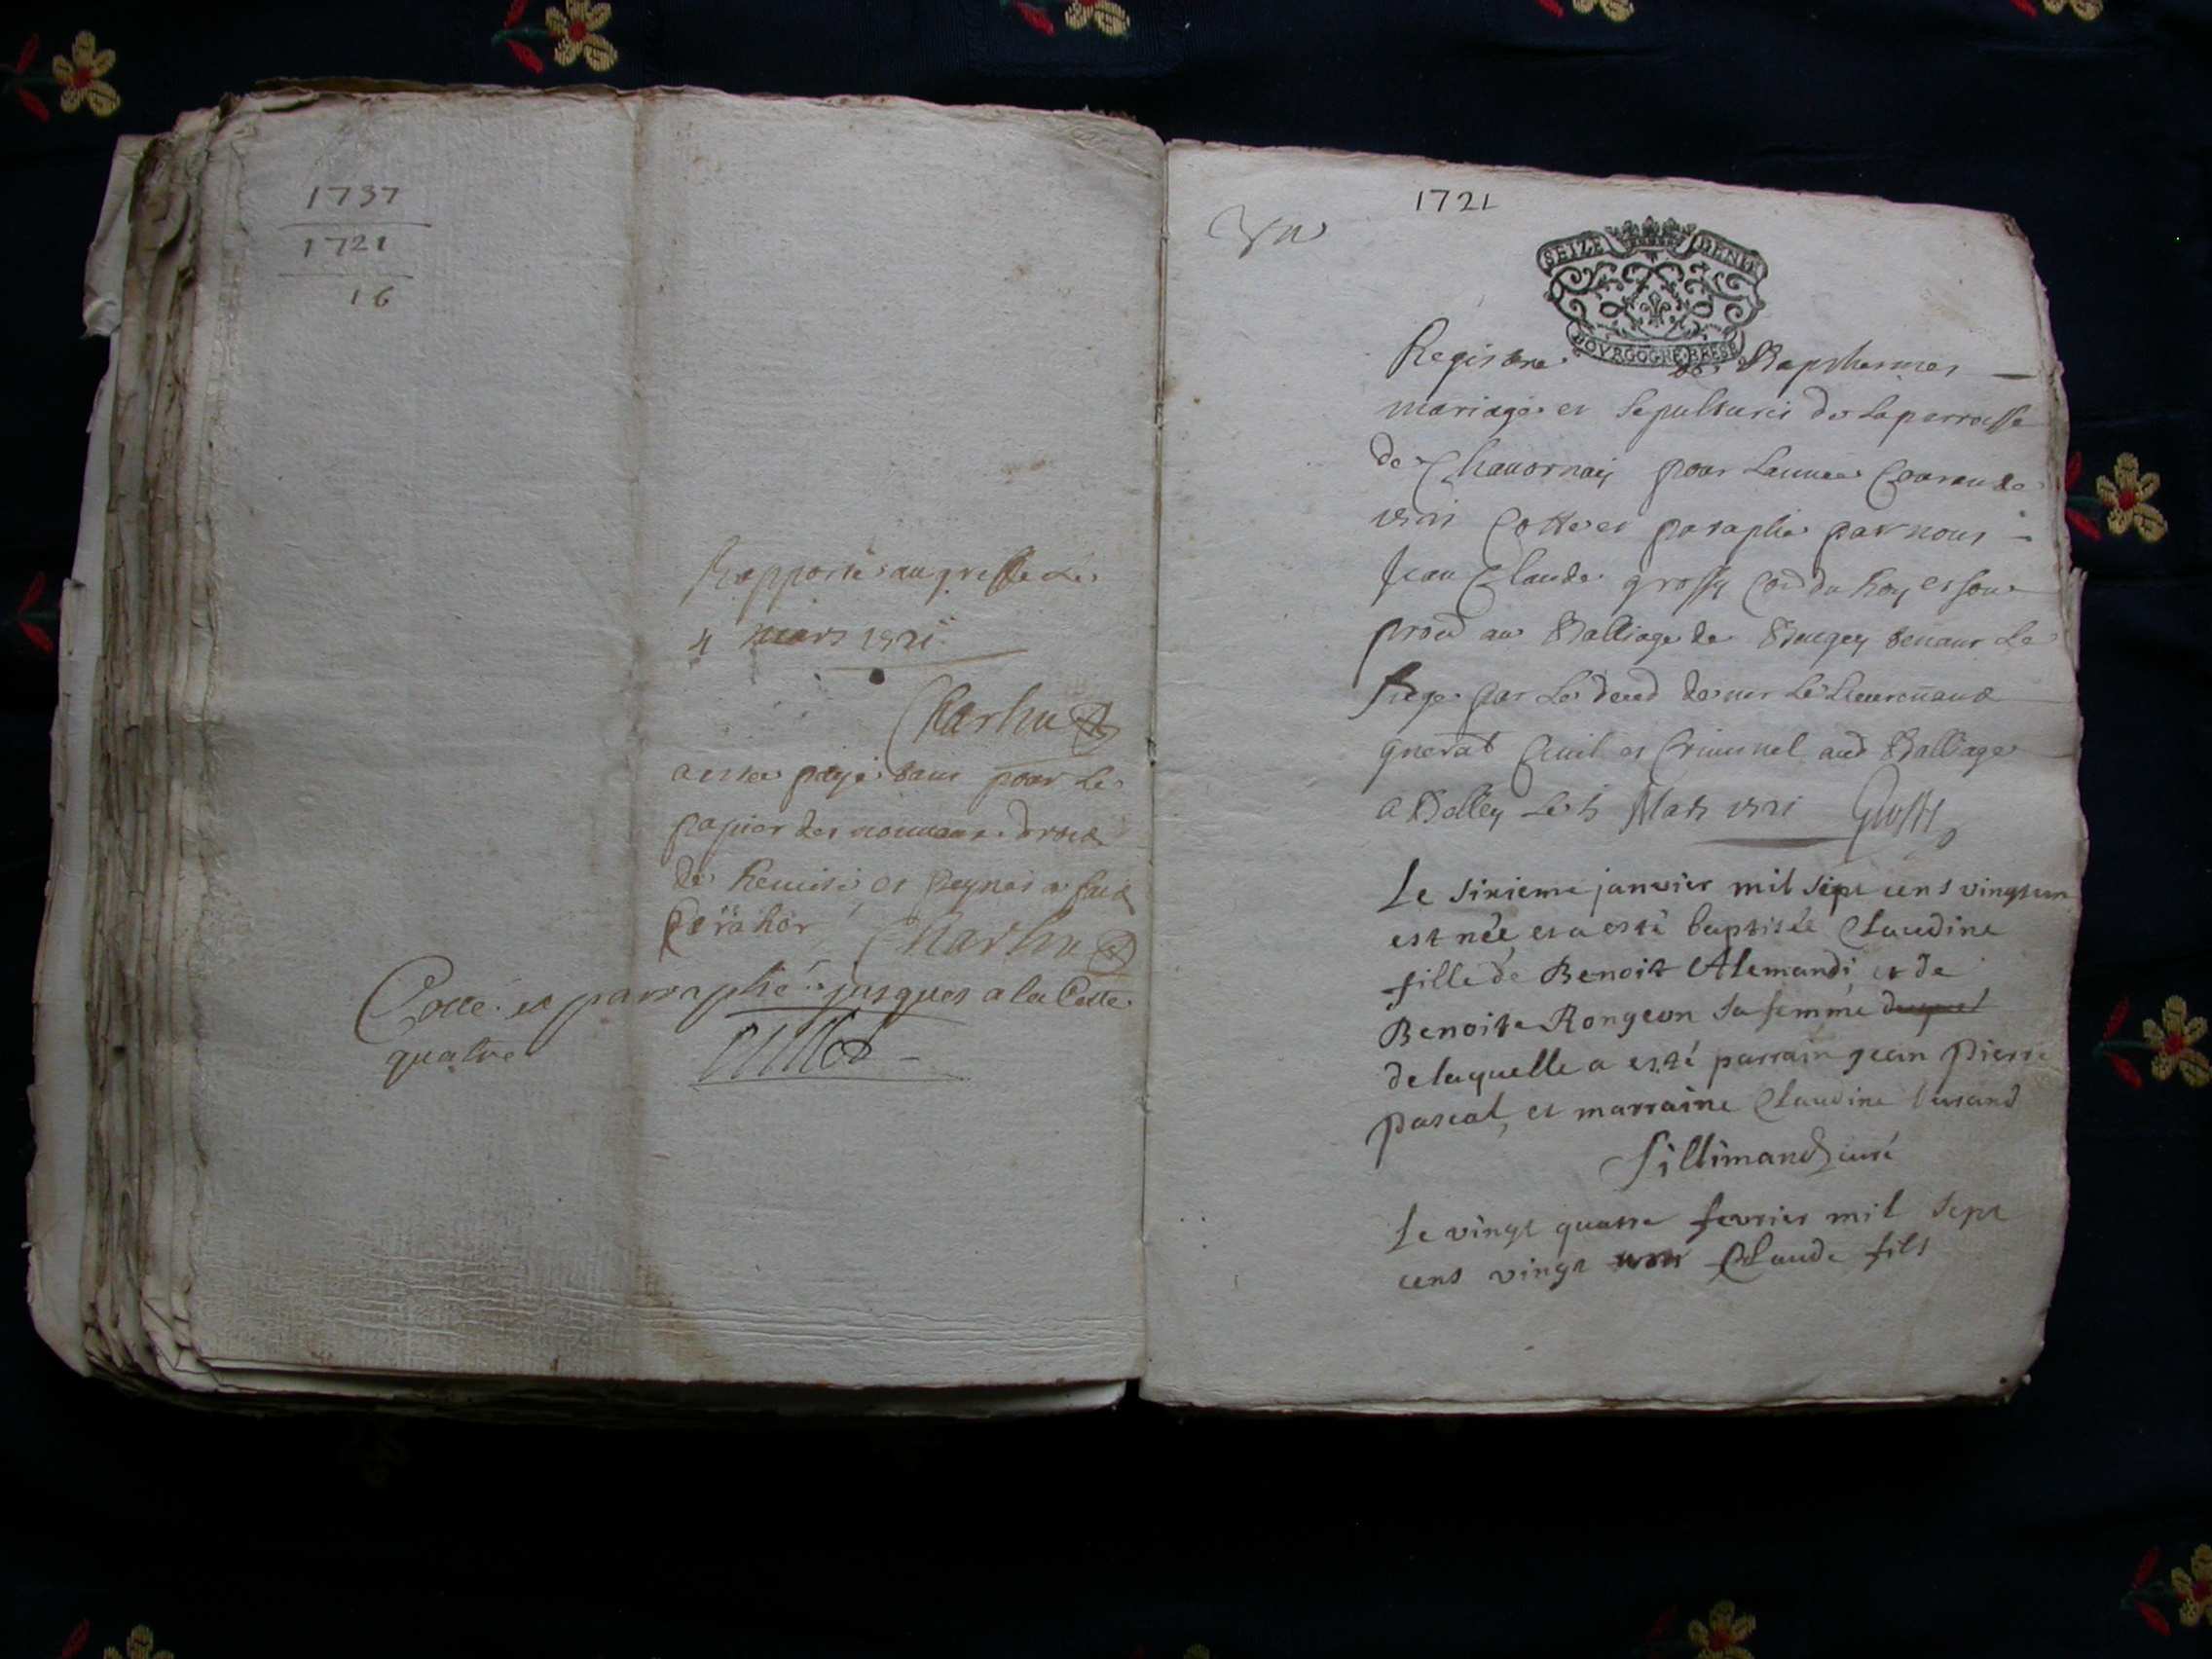 1737
1721
16
Rapporté au greffe le
4 mars 1721
Charlin
payé pour le
papier des nouveaux droit
de et
Charlin
Cotté et parraphé jusques a la Cotte
quatre
1721
SEIZE DENIE
BOVRGOGNE BRESSE
Registre de Bapthesmes
mariages et sepultures de la perroisse
de Chauornay pour lannee Courande
1721 Cotté et paraphé par nous
Jean Claude grossy Coner du Roy et son
procr au Balliage de Bugey tenant Le
siege par le deced de mr le Lieutenand
gneral Ciuil et Criminel aud Balliage
a Belley le 5 Mars 1721 Grossy
Le sixieme janvier mil sept cens vingt un
est née et a esté baptisée Claudine
fille de Benoit Alemandi et de
Benoite Rongeon sa femme duquel
de laquelle a esté parrain jean Pierre
Pascal, et marraine Claudine
Sillimand curé
Le vingt quatre fevrier mil sept
cens vingt un Claude fils